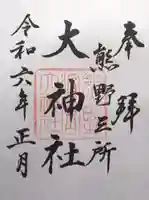 奉拝
熊野三所
大神社
令和六年正月